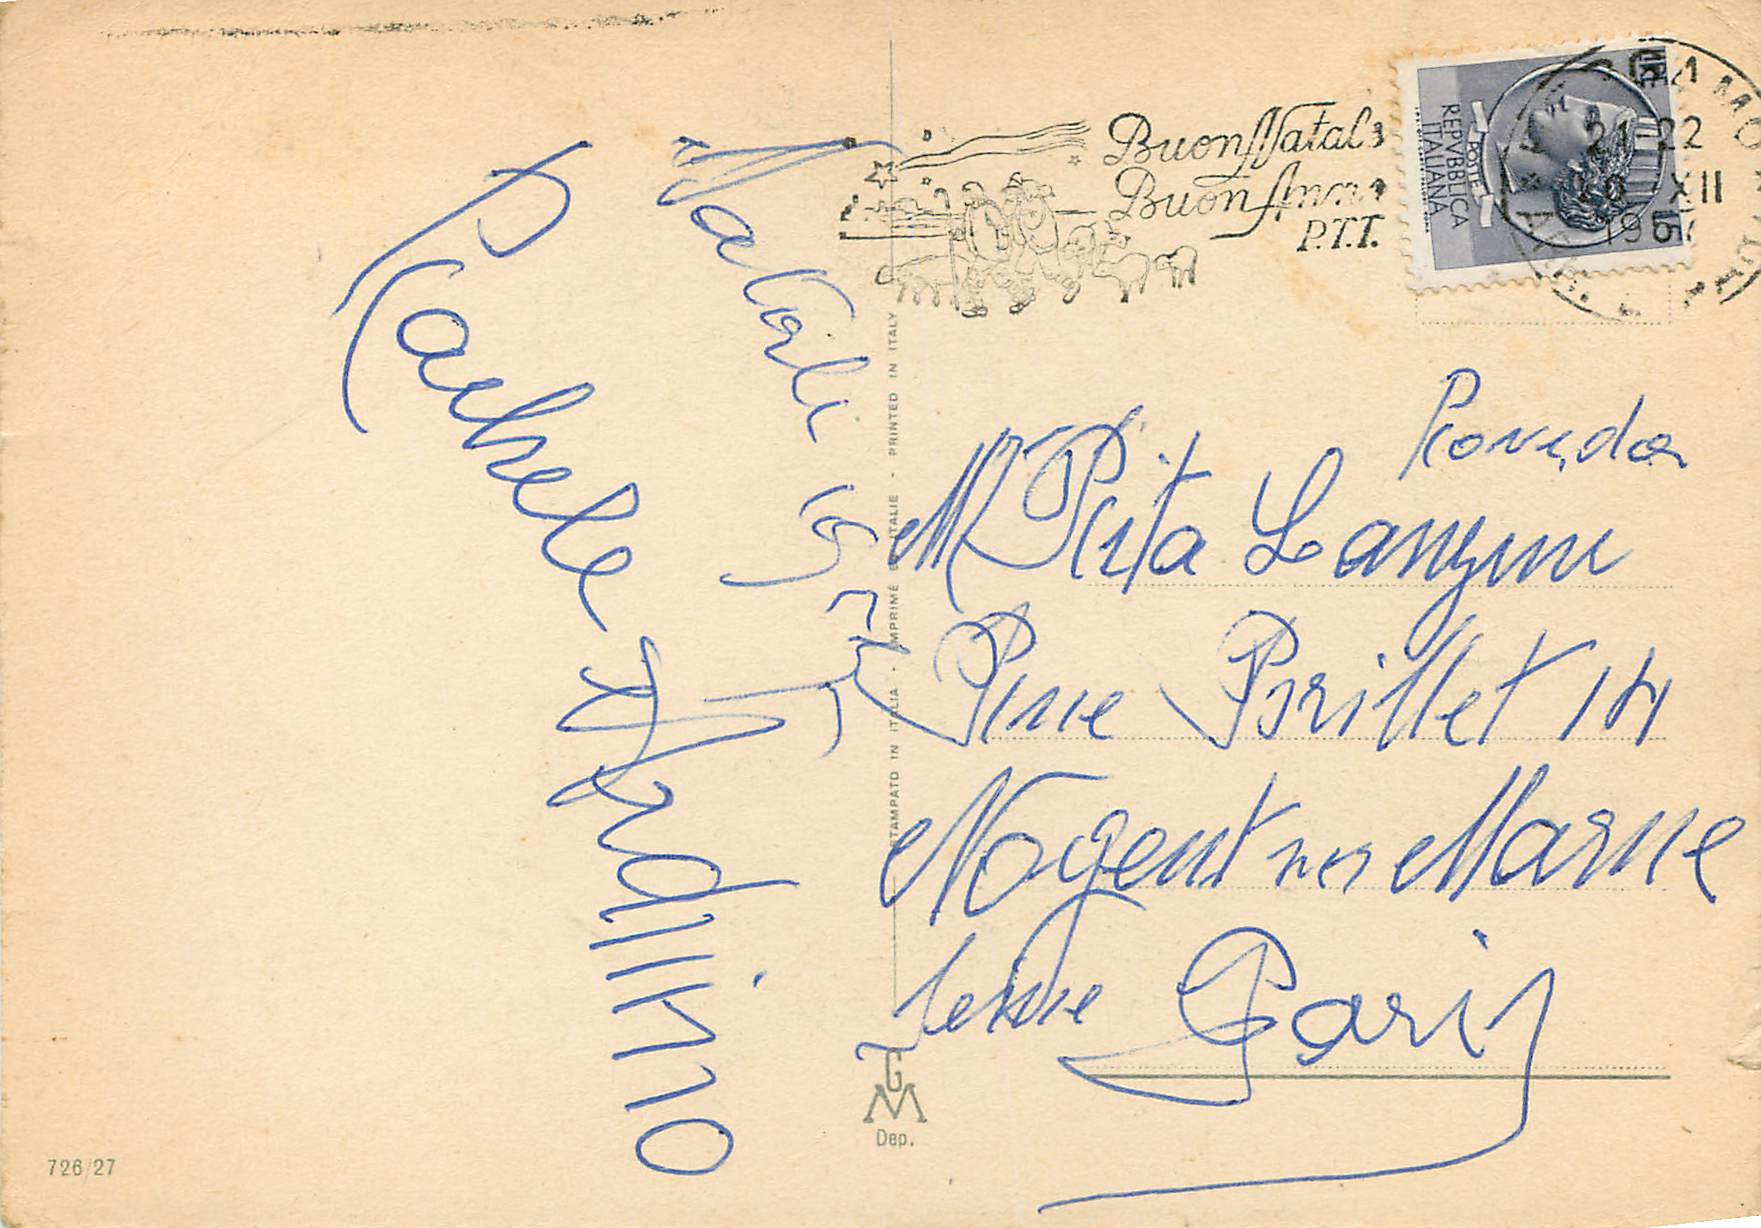 Natale 1957
Rachele Ardilino
Buon Natale
Buon Anno
P.T.T.
POSTE
REPVBBLICA
ITALIANA
21-22
XII
195
Rita
Rue Brillet 14
Nogent sur Marne
Seine Paris
STAMPATO IN ITALIA - IMPRIMÉ EN ITALIE - PRINTED IN ITALY
GM
Dep.
726/27